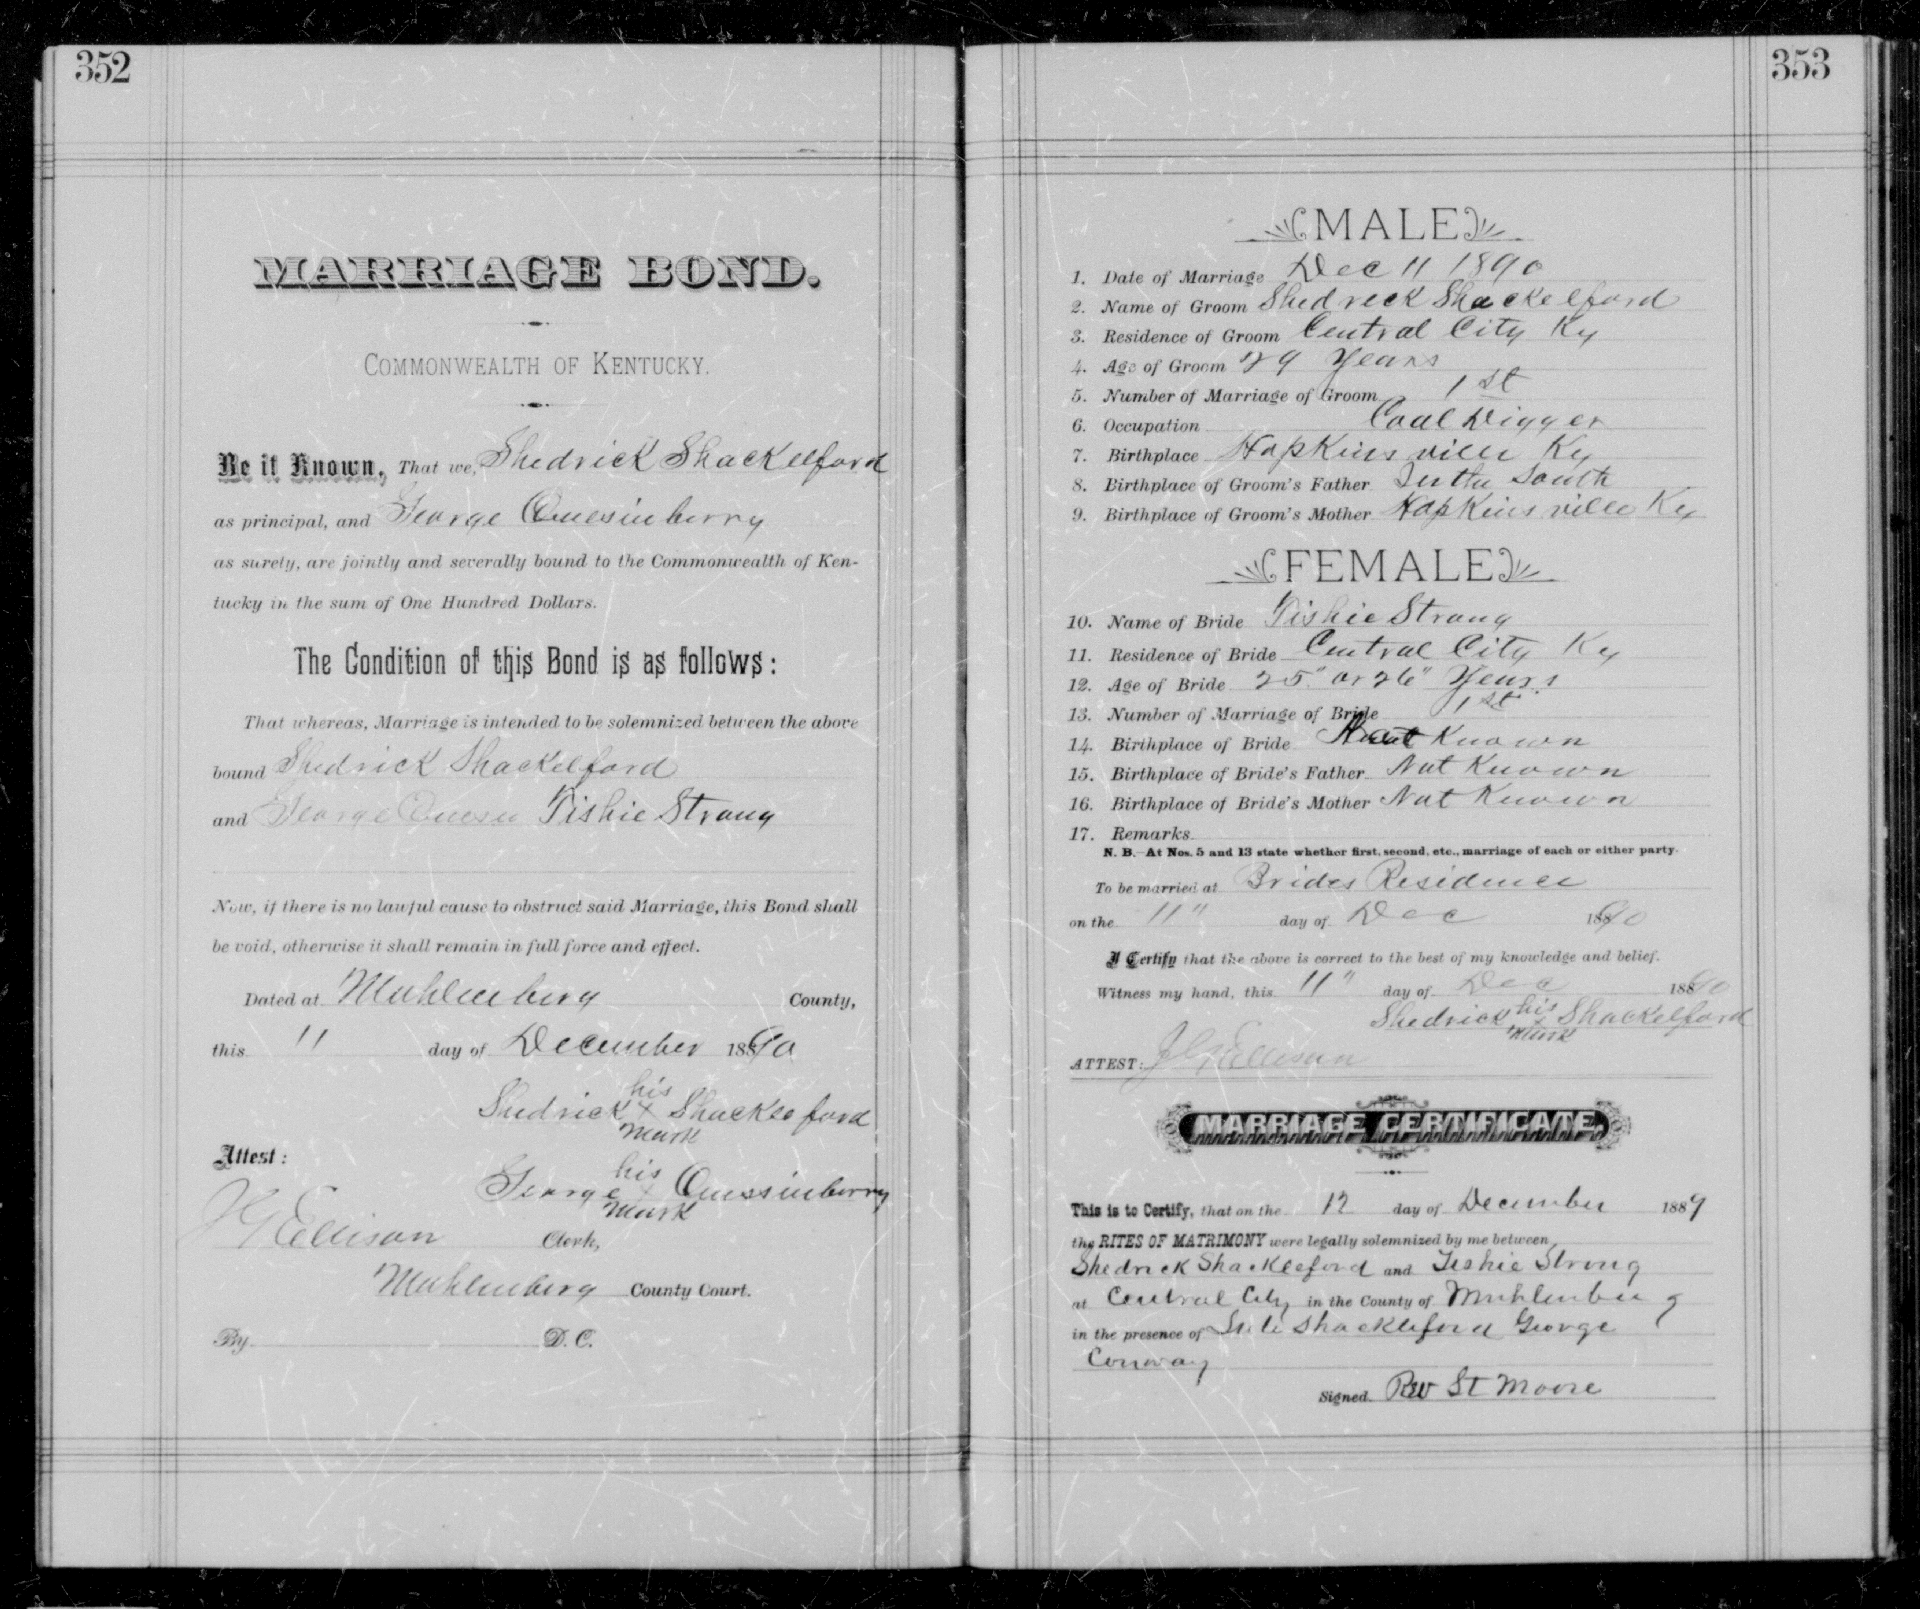 352
MARRIAGE BOND.
COMMONWEALTH OF KENTUCKY.
Be it Known, That we, Shedrick Shackelford
as principal, and George Quesinberry
as surety, are jointly and severally bound to the Commonwealth of Ken-
tucky in the sum of One Hundred Dollars.
The Condition of this Bond is as follows:
That whereas, Marriage is intended to be solemnized between the above
bound Shedrick Shackelford
and George Quesu Tishie Strong
Now, if there is no lawful cause to obstruct said Marriage, this Bond shall
be void, otherwise it shall remain in full force and effect.
Dated at Muhlenberg County,
this 11 day of December 1890
his
Shedrick x Shackleford
mark
Attest:
his
George x Quessinberry
mark
J G Ellison Clerk,
Muhlenberg County Court.
By D. C.
353
MALE
1. Date of Marriage Dec 11 1890
2. Name of Groom Shedrick Shackelford
3. Residence of Groom Central City Ky
4. Age of Groom 29 Years
5. Number of Marriage of Groom 1st
6. Occupation Coal Digger
7. Birthplace Hopkinsville Ky
8. Birthplace of Groom's Father South
9. Birthplace of Groom's Mother Hopkinsville Ky
FEMALE
10. Name of Bride Tishie Strong
11. Residence of Bride Central City Ky
12. Age of Bride 25" or 26" Years
13. Number of Marriage of Bride 1st
14. Birthplace of Bride Not Known
15. Birthplace of Bride's Father Not Known
16. Birthplace of Bride's Mother Not Known
17. Remarks
N. B.—At Nos. 5 and 13 state whether first, second, etc., marriage of each or either party.
To be married at Brides Residence
on the 11" day of Dec 1890
I Certify that the above is correct to the best of my knowledge and belief.
Witness my hand, this 11" day of Dec 1890
his
Shedrick x Shackelford
mark
ATTEST: J G Ellison
MARRIAGE CERTIFICATE
This is to Certify, that on the 12 day of December 1889
the RITES OF MATRIMONY were legally solemnized by me between
Shedrick Shackleford and Tishie Strong
at Central City in the County of Muhlenberg
in the presence of Shackleford George
Conway
Signed. Rev St Moore